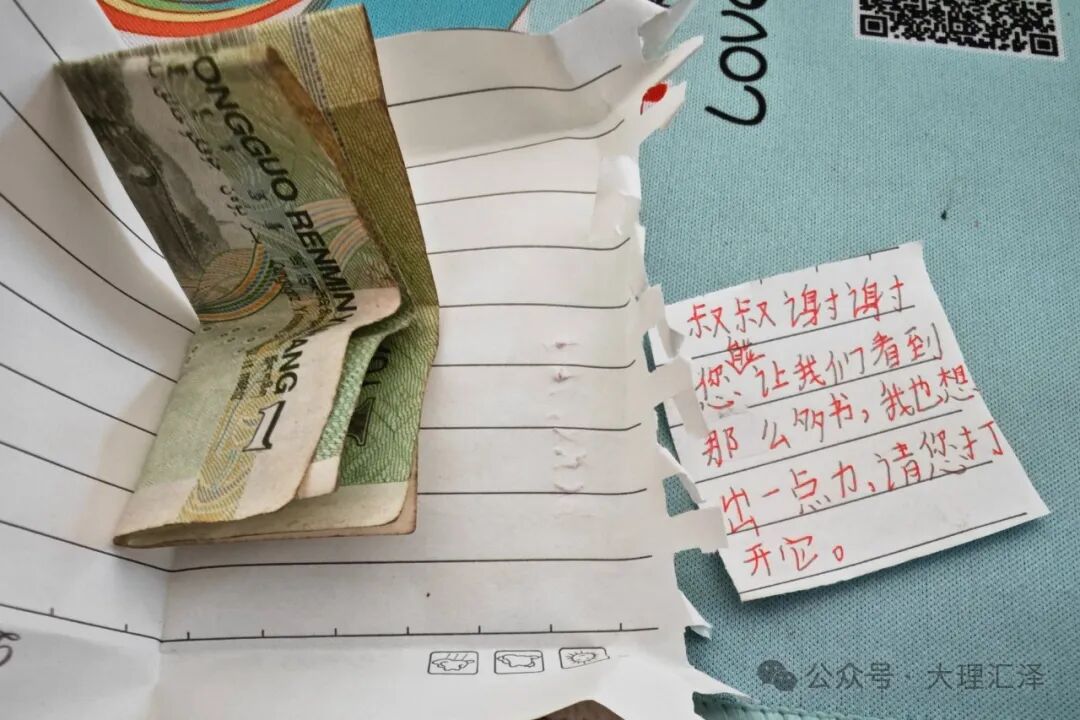 LOVE
ONGGUO RENMIN
1
叔叔谢谢
您能让我们看到
那么多书,我也想
出一点力,请您打
开它。
公众号 · 大理汇泽